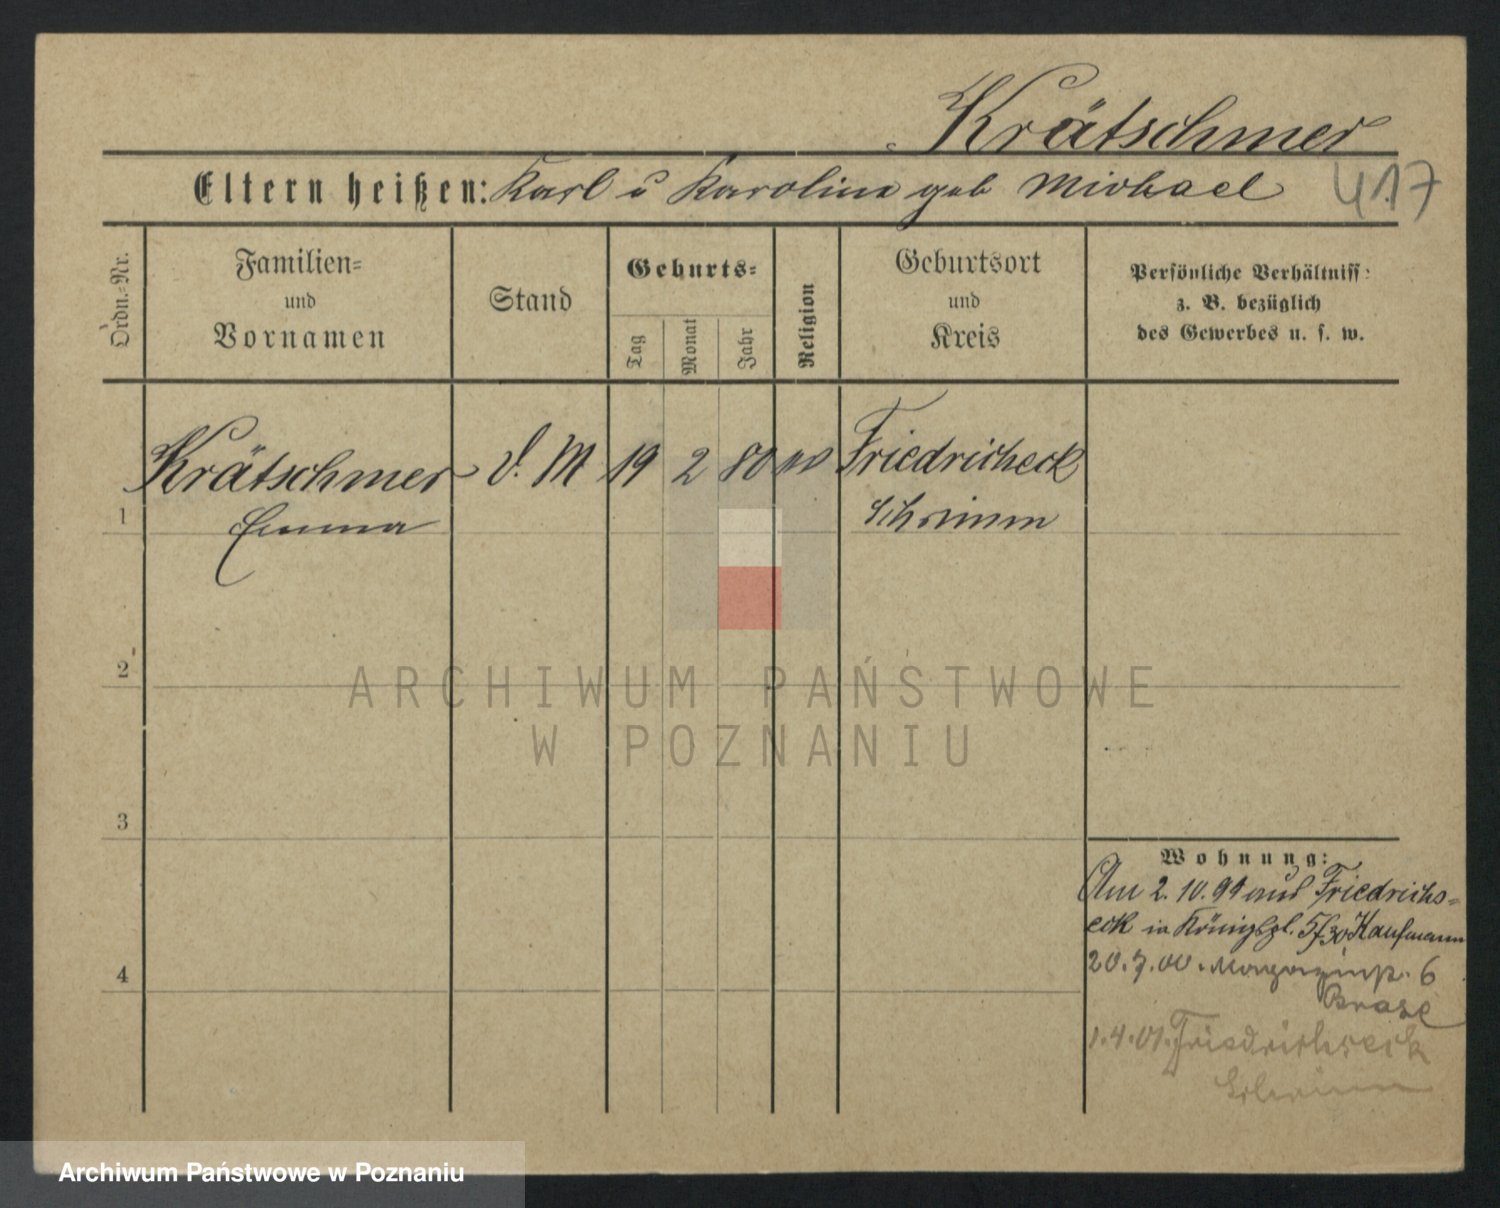 Krätschmer
Eltern heißen: Karl u Karoline geb Michael
417
Ordn.=Nr.
Familien=
und
Vornamen
Stand
Geburts=
Tag
Monat
Jahr
Religion
Geburtsort
und
Kreis
Persönliche Verhältniss:
z. B. bezüglich
des Gewerbes u. s. w.
Krätschmer d. M 19 2 80 Friedricheck
1 Emma Schrimm
2
3
4
Wohnung:
Am 2.10.99 aus Friedrichs=
eck in Königspl. 5/30 Kaufmann
20.7.00. Magazinstr. 6
1.4.01. Friedrichseck
Schrimm
ARCHIWUM PAŃSTWOWE
W POZNANIU
Archiwum Państwowe w Poznaniu